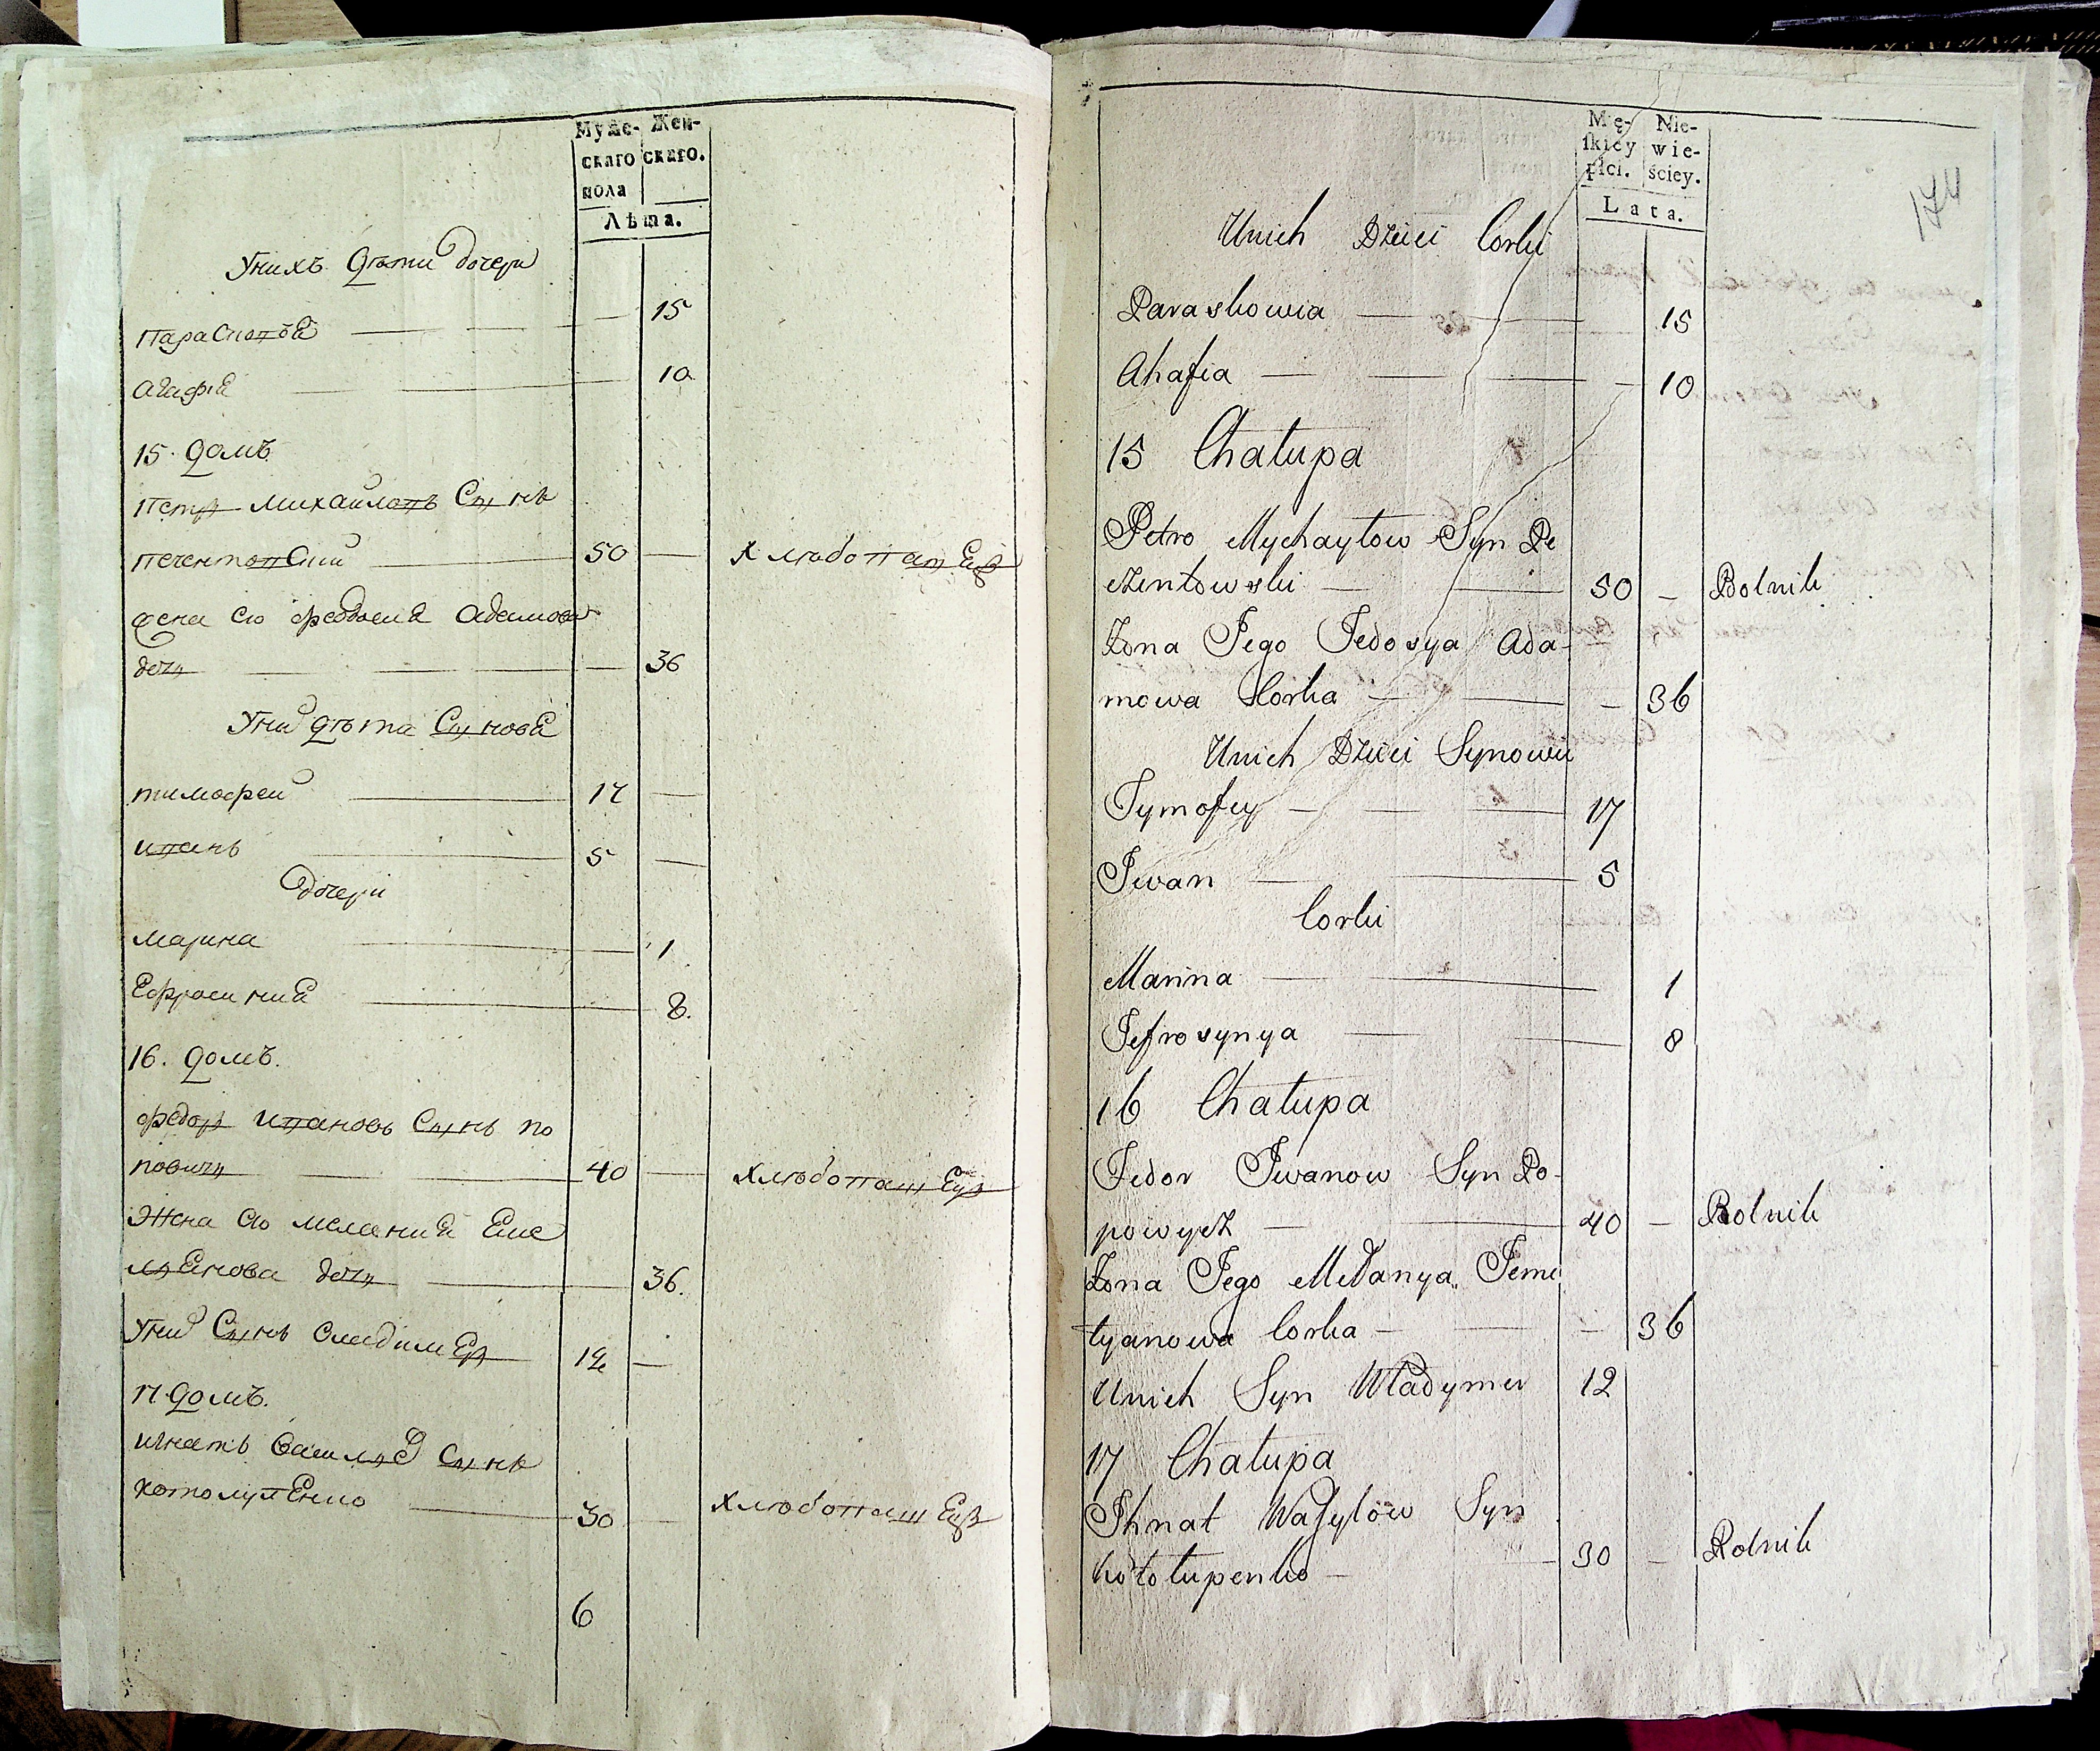 Муже- Жен-
скаго скаго.
пола
Лѣта.
Унихъ дѣти дочери
Парасковѣя 15
Агафія 10
15 домъ
Петръ Михайловъ Сынъ
Печентовский 50 — хлѣбопашецъ
Жена его Федосия Адамова
дочь — 36
Уних дѣти Сыновя
тимофей 17 —
иванъ 5 —
дочери
Марина 1
Ефросиния 8.
16. домъ.
Федоръ Ивановъ Сынъ По
повичъ 40 — хлѣбопашецъ
Жена его Мелания Еме
льянова дочь 36.
Уних Сынъ 12 —
17 домъ.
Игнатъ Василѣв Сынъ
Котолупенко 30 — хлѣбопашецъ
6
Mę- Nie-
ſkiey wie-
płci. ściey.
Lata.
174
Unich Dzieci Corki
Paraskowia 15
Ahafia — 10
15 Chałupa
Petro Mychayłow Syn Pe
czentowski 50 — Rolnik
Zona Jego Fedosya Ada-
mowa Corka — 36
Unich Dzieci Synowie
Tymofey 17
Iwan 5
Corki
Marina 1
Jefrosynya 8
16 Chałupa
Fedor Iwanow Syn Po-
powycz 40 — Rolnik
Zona Jego Mełanya Jeme
łyanowa Corka — 36
Unich Syn Władymer 12
17 Chałupa
Ihnat Waſylów Syn
Kotołupenko 30 — Rolnik